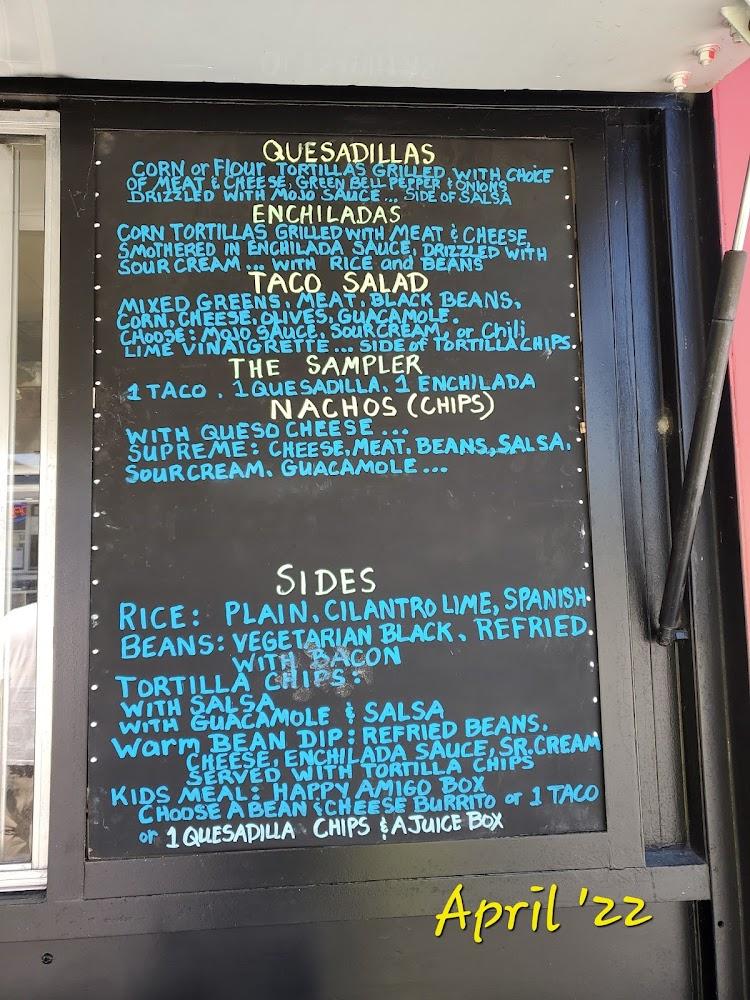 QUESADILLAS
CORN or Flour TORTILLAS GRILLED WITH CHOICE
OF MEAT & CHEESE, GREEN BELL PEPPER & ONIONS
DRIZZLED WITH MOJO SAUCE ... SIDE OF SALSA
ENCHILADAS
CORN TORTILLAS GRILLED WITH MEAT & CHEESE,
SMOTHERED IN ENCHILADA SAUCE, DRIZZLED WITH
SOUR CREAM ... WITH RICE and BEANS
TACO SALAD
MIXED GREENS, MEAT, BLACK BEANS,
CORN, CHEESE, OLIVES, GUACAMOLE.
CHOOSE: MOJO SAUCE, SOUR CREAM, or Chili
LIME VINAIGRETTE ... SIDE of TORTILLA CHIPS.
THE SAMPLER
1 TACO, 1 QUESADILLA, 1 ENCHILADA
NACHOS (CHIPS)
WITH QUESO CHEESE ...
SUPREME: CHEESE, MEAT, BEANS, SALSA,
SOUR CREAM, GUACAMOLE ...
SIDES
RICE: PLAIN, CILANTRO LIME, SPANISH
BEANS: VEGETARIAN BLACK, REFRIED
WITH BACON
TORTILLA CHIPS:
WITH SALSA
WITH GUACAMOLE & SALSA
Warm BEAN DIP: REFRIED BEANS,
CHEESE, ENCHILADA SAUCE, SR. CREAM
SERVED WITH TORTILLA CHIPS
KIDS MEAL: HAPPY AMIGO BOX
CHOOSE A BEAN & CHEESE BURRITO or 1 TACO
or 1 QUESADILLA CHIPS & A JUICE BOX
April '22